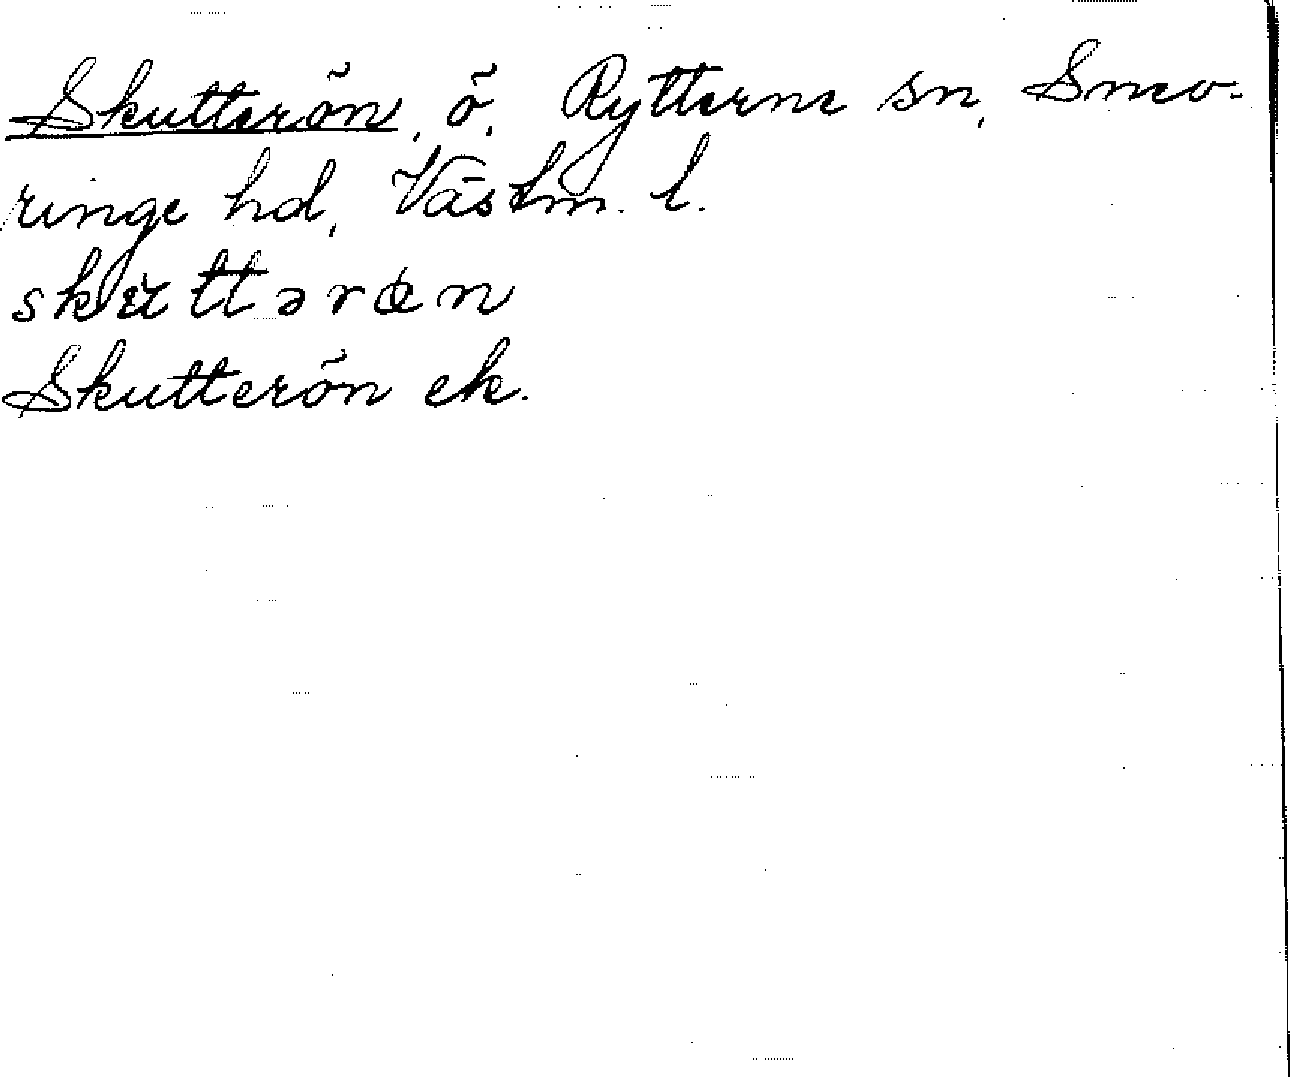 Skutterön, ö, Rytterne sn, Snev-
ringe hd, Västm. l.
skùttərøn
Skutterön ek.